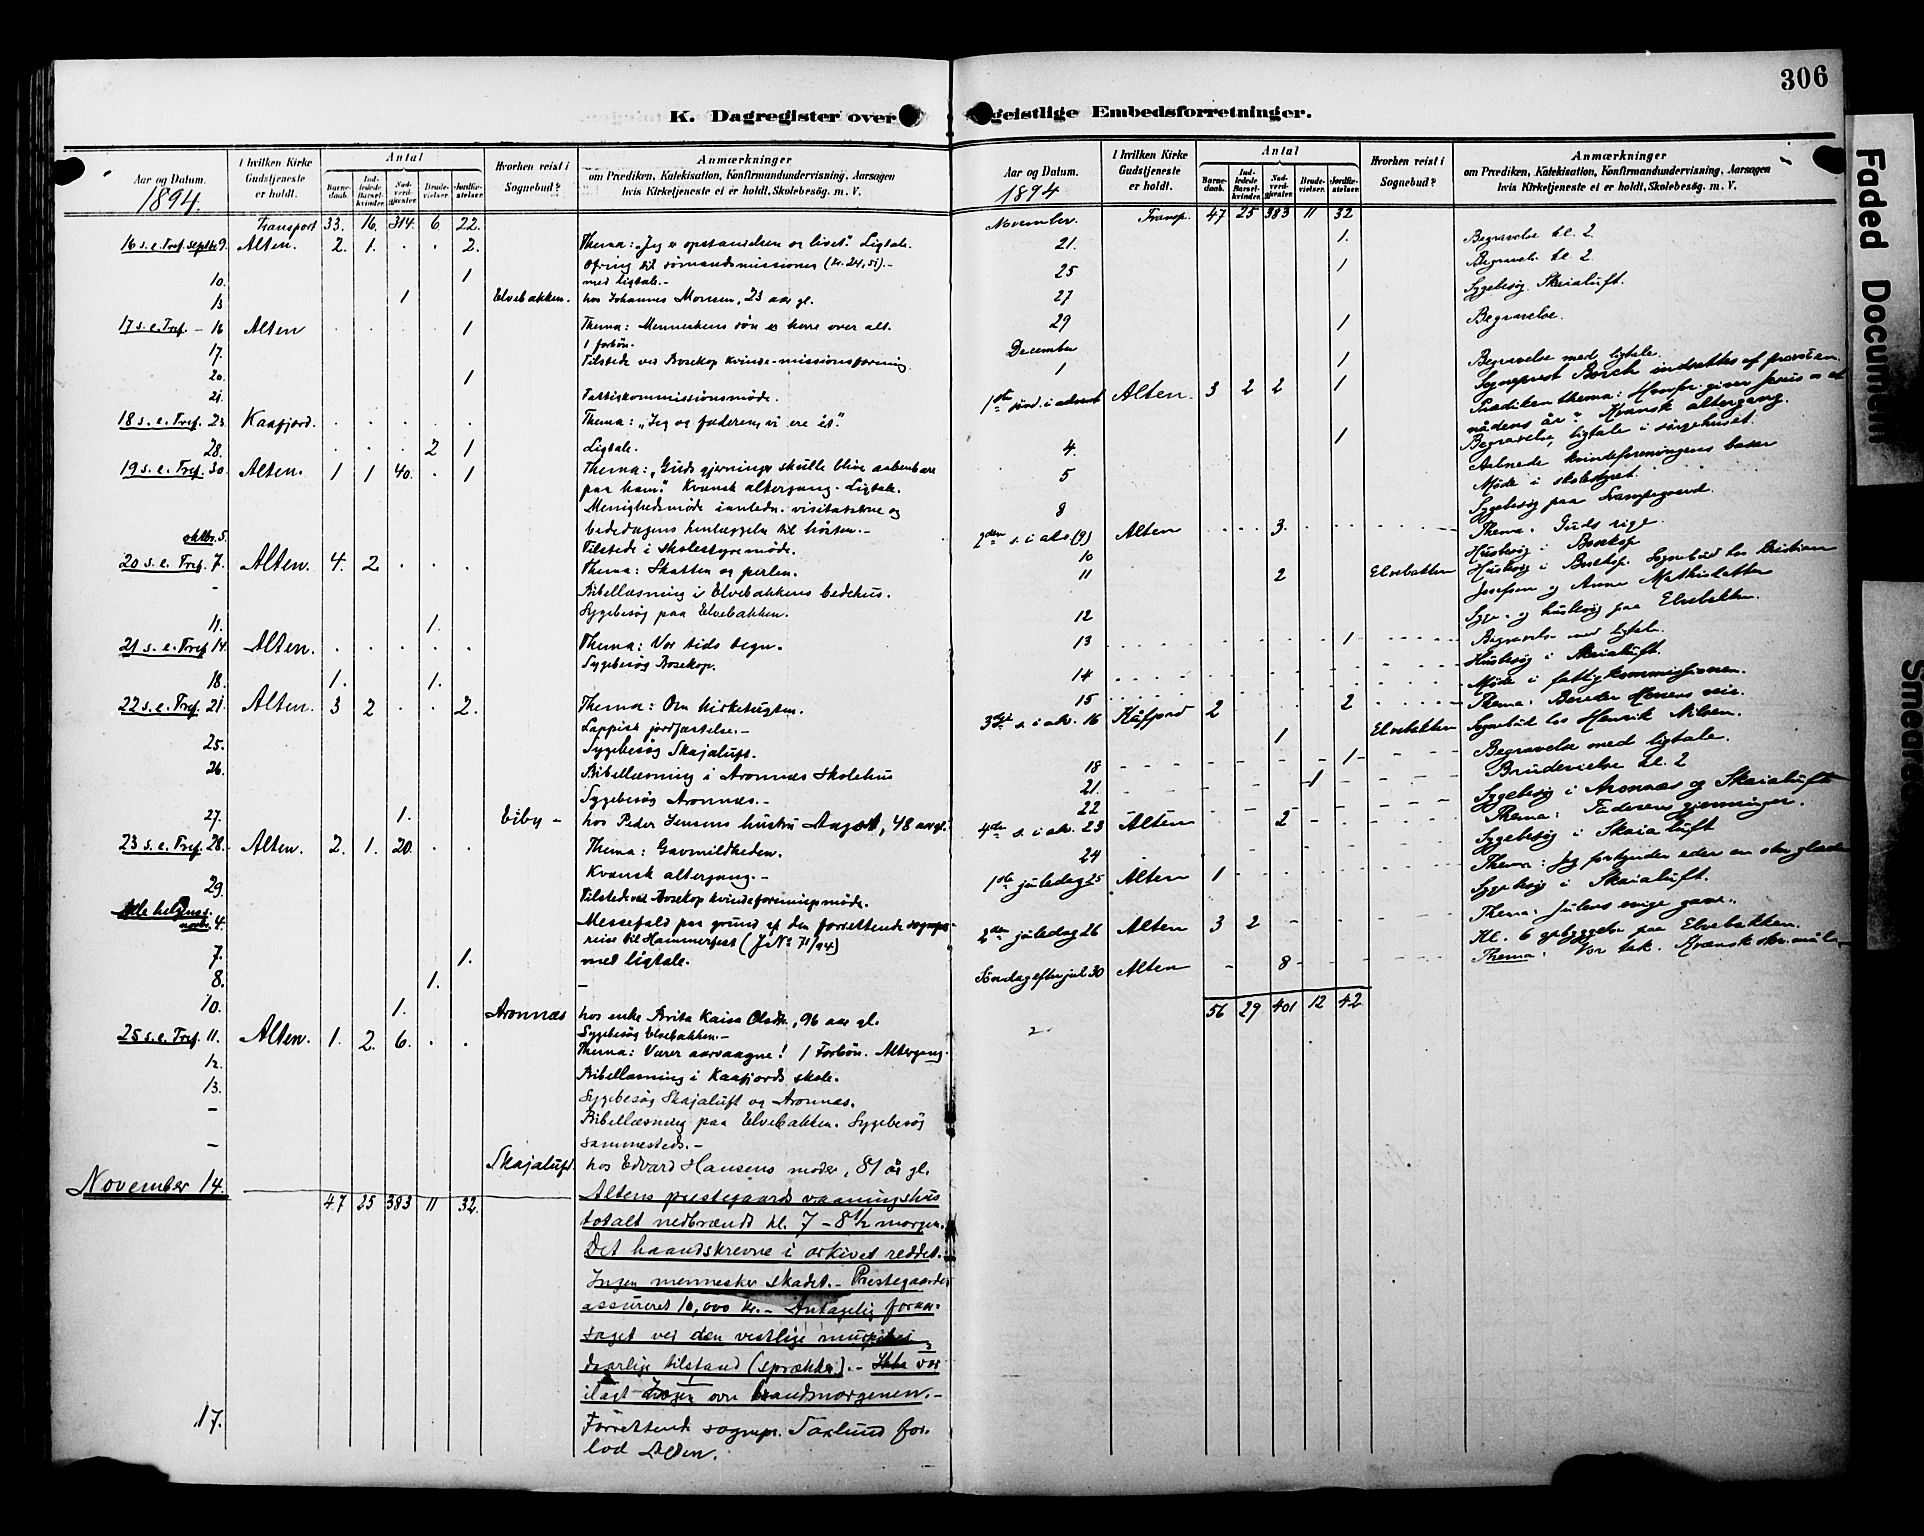 306
K. Dagregister over geistlige Embedsforretninger.
Aar og Datum.
1894.
I hvilken Kirke Gudstjeneste er holdt.
Antal
Barnedaab.
Indledede Barselkvinder.
Nadverdgjester.
Brudevielser.
Jordfæstelser.
Hvorhen reist i Sognebud?
Anmærkninger
om Prædiken, Katekisation, Konfirmandundervisning, Aarsagen
hvis Kirketjeneste ei er holdt, Skolebesøg. m. V.
Transport 33. 16. 314. 6 22.
16 s. e. Tref. septbr 9. Alten. 2. 1. . . 2. Thema: „Jeg er opstandelsen og livet". Ligtale.
Ofring til sømandsmissionen (kr. 24,51). –
10. 1 med ligtale. –
13 1 Elvebakken. hos Johannes Monsen, 23 aar gl.
17 s. e. Tref. – 16 Alten . . . . 1 Thema: Menneskens søn er herre over alt.
1 forbøn.
17. Tilstede ved Bosekop kvinde-missionsforening.
20. 1
21. Fattigkommissionsmøde.
18 s. e. Tref. 23. Kaafjord. . . . . . Thema: „Jeg og faderen, vi ere ét".
28. . . . 2 1 Ligtale.
19 s. e. Tref. 30. Alten. 1 1 40. . 1 Thema: „Guds gjerninger skulle blive aabenbare
paa ham". Kvænsk altergang. Ligtale.
Menighedsmøde i anledn. visitatserne og
bededagens henlæggelse til høsten. –
oktbr. 5. Tilstede i Skolestyremøde.
20 s. e. Tref. 7. Alten. 4. 2 . . . Thema: Skatten og perlen.
– Bibellæsning i Elvebakkens bedehus.
Sygebesøg paa Elvebakken.
11. 1.
21 s. e. Tref. 14. Alten. . . . . . Thema: Vor tids tegn.
Sygebesøg Bosekop.
18. 1. 1.
22 s. e. Tref. 21. Alten. 3 2 . . 2. Thema: Om kirketugten.
Lappisk jordfæstelse. –
25. Sygebesøg Skajaluft.
26. Bibellæsning i Aronnæs skolehus
Sygebesøg Aronnæs. –
27. 1. Eiby – hos Peder Jensens hustru, 48 aar gl.
23 s. e. Tref. 28. Alten. 2. 1. 20. . . Thema: Gavmildheden.
Kvænsk altergang. –
29. Tilstede ved Bosekop kvindeforeningsmøde.
Alle helgens s. novbr. 4. Messefald paa grund af den forrettende sognepr.
reise til Hammerfest (J. No 71/94)
7. 1. med ligtale.
8. 1. –
10. 1. Aronnæs hos enke Brita Kaisa Olsdtr., 96 aar gl.
Sygebesøg Elvebakken. –
25 s. e. Tref. 11. Alten. 1. 2. 6. . . Thema: Værer aarvaagne! 1 Forbøn. Altergang.
12. Bibellæsning i Kaafjords skole.
13. Sygebesøg Skajaluft og Aronnæs.
– Bibellæsning paa Elvebakken. Sygebesøg
sammesteds. –
– Skajaluft. hos Edvard Hansens moder, 81 år gl.
November 14. 47 25 383 11 32. Altens prestegaards vaaningshus
totalt nedbrændt kl. 7 – 8½ morgen.
Det haandskrevne i arkivet reddet.
Ingen mennesker skadet. – Prestegaarden
assureret 10,000 kr. – Antagelig foraar-
saget ved den vestlige
daarlige tilstand (sprækker). – Ikke var
ilagt ovn brandmorgenen. –
17. Forrettende sognepr. Saxlund for-
lod Alten.
Aar og Datum.
1894
I hvilken Kirke Gudstjeneste er holdt.
Antal
Barnedaab.
Indledede Barselkvinder.
Nadverdgjester.
Brudevielser.
Jordfæstelser.
Hvorhen reist i Sognebud?
Anmærkninger
om Prædiken, Katekisation, Konfirmandundervisning, Aarsagen
hvis Kirketjeneste ei er holdt, Skolebesøg. m. V.
November. Transp. 47 25 383 11 32
21. 1. Begravelse kl. 2
25 1 Begravelse kl. 2
27 Sygebesøg Skaialuft.
29 1 Begravelse.
December
1 1 Begravelse med ligtale.
Sogneprest Borch indsættes af provsten.
1ste sønd. i advent Alten. 3 2 2 1 Prædiken thema: Jesus
nådens år. Kvænsk altergang.
4. 1 Begravelse, ligtale i sørgehuset.
Aabnede kvindeforeningens basar
5 Møde i skolestyret.
8 Sygebesøg paa
2den s. i adv (9) Alten . . . . 3. Thema. Guds rige.
10 Husbesøg i Bosekop
11 2 Elvebakken Husbesøg i Bosekop. Sognebud hos Kristian
Josefsen og Anna
12 Syge- og husbesøg paa Elvebakken.
13 1 Begravelse med ligtale.
14 Husbesøg i Skaialuft.
Møde i fattigkommissionen.
15 2 Thema: Bereder Herrens vei.
3dje s. i adv. 16 Kåfjord 2
1 Elvebakken Sognebud hos Henrik Nilsen.
18 1 Begravelse med ligtale.
21. 1 Brudevielse kl. 2
22 Sygebesøg i Aronnæs og Skaialuft
4de s. i adv. 23 Alten 2 Thema: Faderens gjerninger.
24 Sygebesøg i Skaialuft
1ste juledag 25 Alten 1 Thema: Jeg forkynder eder en stor glæde
Sygebesøg i Skaialuft.
2den juledag 26 Alten 3 2 Thema: Julens evige gave.
Kl. 6 opbyggelse paa Elvebakken.
Søndag efter jul 30 Alten – 8 Thema: Vor tak.
56 29 401 12 42
Faded Document
Smeared